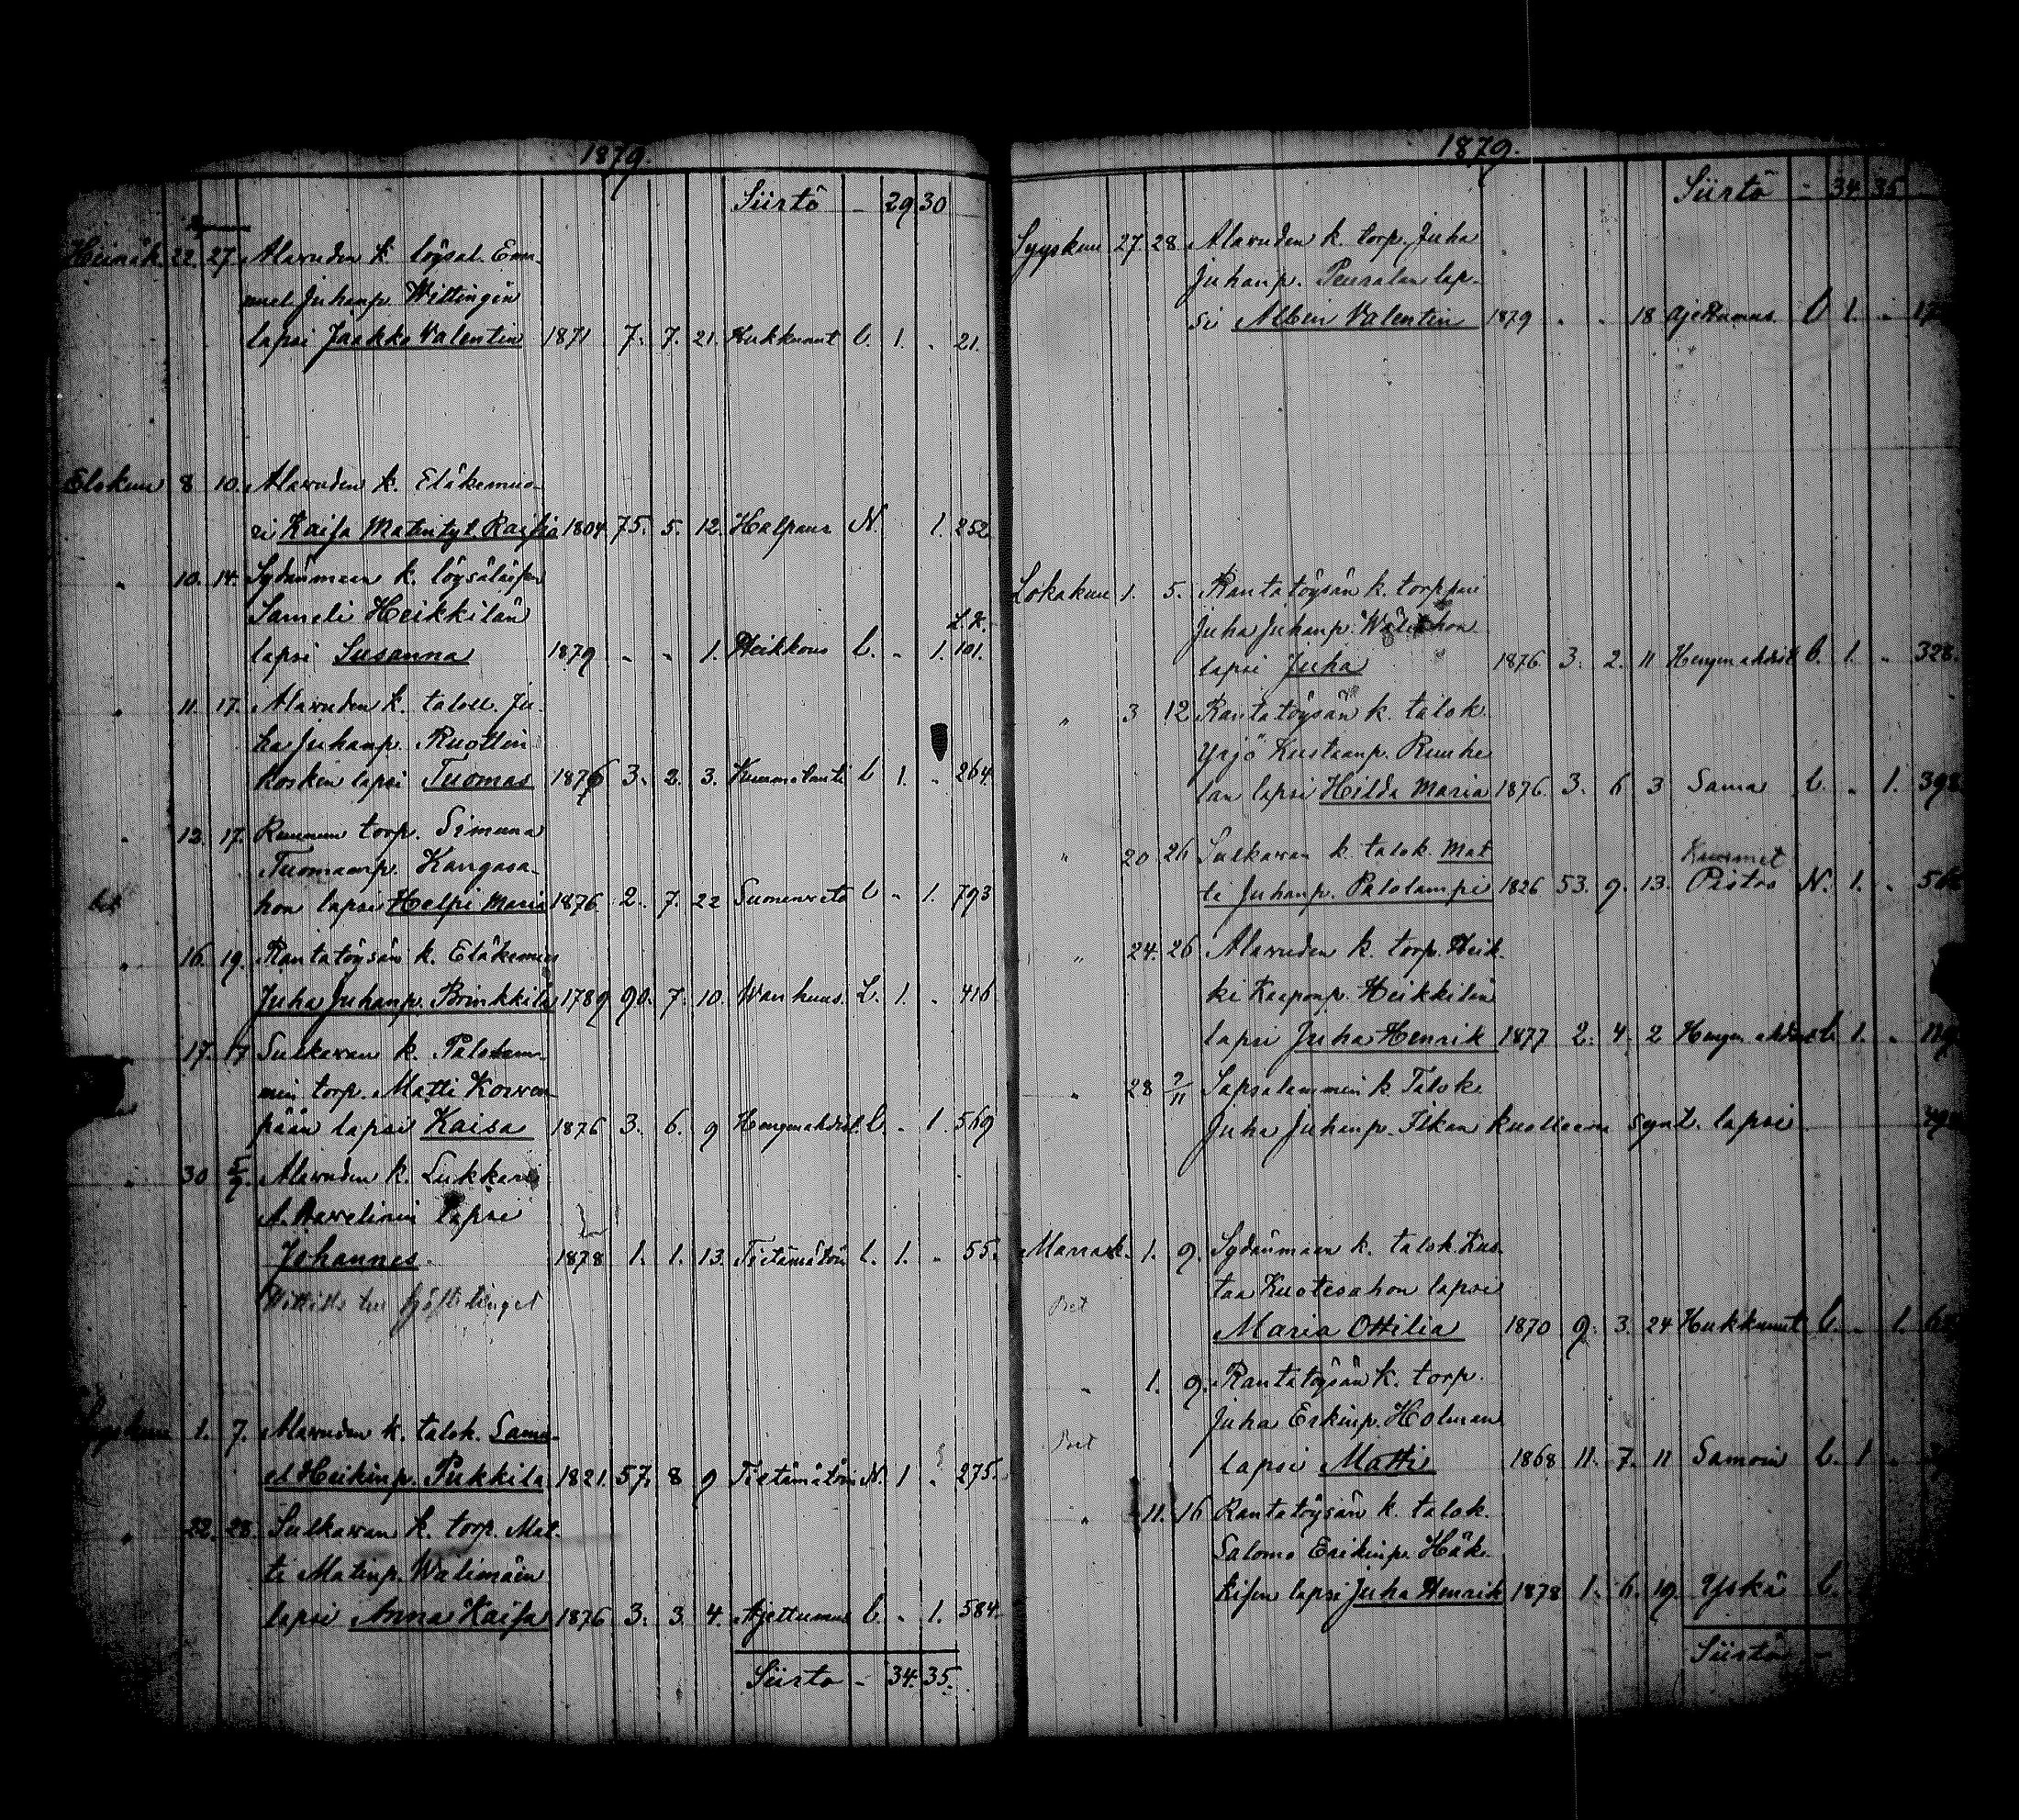 1879.
Siirtö - 29 30
Heinäk. 22. 27. Alavuden k. löysal. Ema-
nuel Juhanp. Wittingin
lapsi Jaakko Valentin 1871 7. 7. 21. Hukkunut l. 1. . 21.
Elokuu 8 10. Alavuden k. Eläkemuo-
ri Kaisa Matintyt. 1804. 75. 5. 12. Halpaus N. 1. 252
" 10. 14. Sydänmaan k. löysäläisen
Sameli Heikkilän
L.K.
lapsi Susanna 1879 - - 1. Heikkous l. - 1. 101.
" 11. 17. Alavuden k. taloll. Ju-
ha Juhanp. Ruottin
kosken lapsi Tuomas 1876 3. 2. 3. l. 1. . 264.
" 12. 17. torp. Simuna
Tuomaanp. Kangasa-
hon lapsi Helpi Maria 1876. 2. 7. 22 l. - 1. 793
" 16. 19. Rantatöysän k. Eläkemies
Juha Juhanp. Brinkkilä 1789. 90. 7. 10. Wanhuus. L. 1. . 416
17. 17 Sulkavan k. Palolam-
min torp. Matti Korven-
pään lapsi Kaisa 1876 3. 6. 9 Hengenahdist. l. - 1. 569
" 30 5/9. Alavuden k. Lukkarin
A. Avvelinin lapsi
Johannes. 1878 1. 1. 13. Tietämätön l. 1. . 55.
Syyskuu 1. 7. Alavuden k. talok. Samu-
el Heikinp. Pukkila 1821. 57. 8 9 Tietämätön N. 1 . 275.
" 22. 28. Sulkavan k. torp. Mat-
ti Matinp. Wälimäen
lapsi Anna Kaisa 1876 3. 3. 4. Ajettumus l. - 1. 584.
Siirto - 34. 35.
1879.
Siirtö - 34. 35
Syyskuu 27. 28. Alavuden k. torp. Juha
Juhanp. Peuralan lap-
si Albin Valentin 1879 . . 18 Ajettumus. l 1. .
Lokakuu 1. 5. Rantatöysän k. torppari
Juha Juhanp.
lapsi Juha 1876. 3. 2. 11 Hengenahdist l. 1. . 328.
" 3 12 Rantatöysän k. talok.
Yrjö Kustaanp. Ruuhe
lan lapsi Hilda Maria 1876. 3. 6 3 Sama l. . 1. 398
" 20 26 Sulkavan k. talok. Mat
ti Juhanp. Palolampi 1826 53. 9. 13. Pistos N. 1. .
" 24. 26 Alavuden k. torp. Heik-
ki Kaaponp. Heikkilän
lapsi Juha Henrik 1877 2. 4. 2 Hengenahdist l. 1. .
" 28 2/11 Sapsalammin k. Talok.
Juha Juhanp. Ilkan kuolleena synt. lapsi
Marrask. 1. 9. Sydänmaan k. talok. Kus-
taa Kuotesahon lapsi
Maria Ottilia 1870 9. 3. 24 Hukkunut l. . 1.
" 1. 9. Rantatöysän k. torp.
Juha Erkinp. Holman
lapsi Matti 1868 11. 7. 11 Samoin l. 1
" 11. 16 Rantatöysän k. talok.
Salomo Erikinp. Häk-
kisen lapsi Juha Henrik 1878 1. 6. 19. Yskä l.
Siirtö -